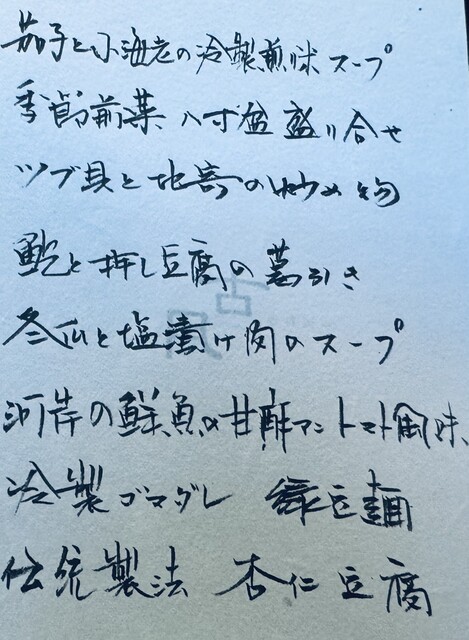 茄子と小海老の冷製煎味スープ
季節前菜 八寸盆盛り合せ
ツブ貝と地
の炒め物
鮑と押し豆腐の葛引き
冬瓜と塩漬け肉のスープ
河岸の鮮魚の甘酢アントマト風味、
冷製ゴマダレ 緑豆麺
伝統製法 杏仁豆腐